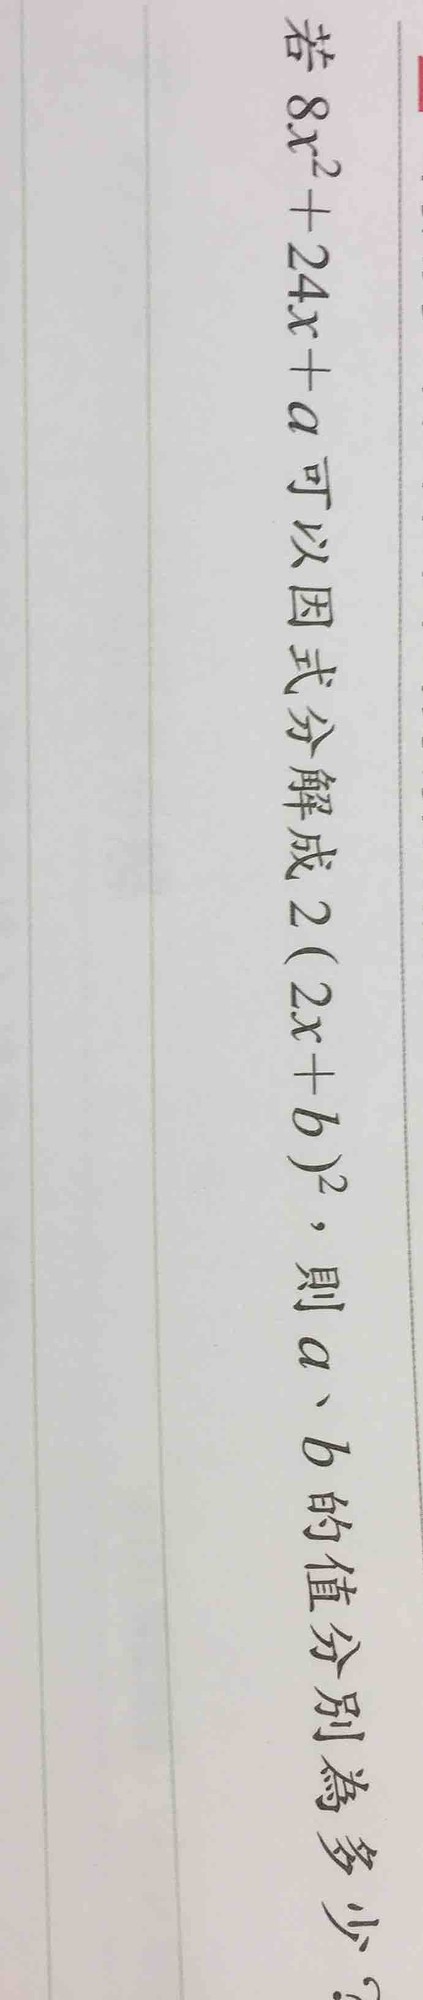 若 8x²+24x+a 可以因式分解成 2(2x+b)²，則 a、b 的值分別為多少？